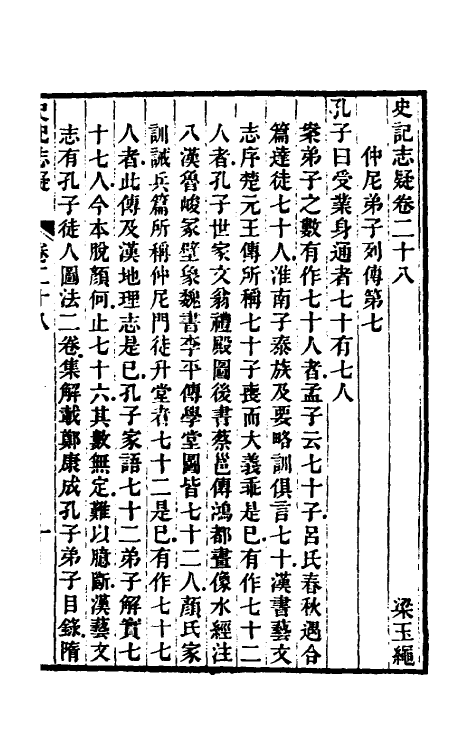 史記志疑卷二十八
梁玉繩
仲尼弟子列傳第七
孔子曰受業身通者七十有七人
案弟子之數有作七十人者孟子云七十子呂氏春秋遇合
篇達徒七十人淮南子泰族及要略訓俱言七十漢書藝文
志序楚元王傳所稱七十子喪而大義乖是已有作七十二
人者孔子世家文翁禮殿圖後書蔡邕傳鴻都畫像水經注
八漢魯峻冢壁象魏書李平傳學堂圖皆七十二人顏氏家
訓誡兵篇所稱仲尼門徒升堂者七十二是已有作七十七
人者此傳及漢地理志是已孔子家語七十二弟子解實七
十七人今本脫顏何止七十六其數無定難以臆斷漢藝文
志有孔子徒人圖法二卷集解載鄭康成孔子弟子目錄隋
史記志疑 卷二十八 一